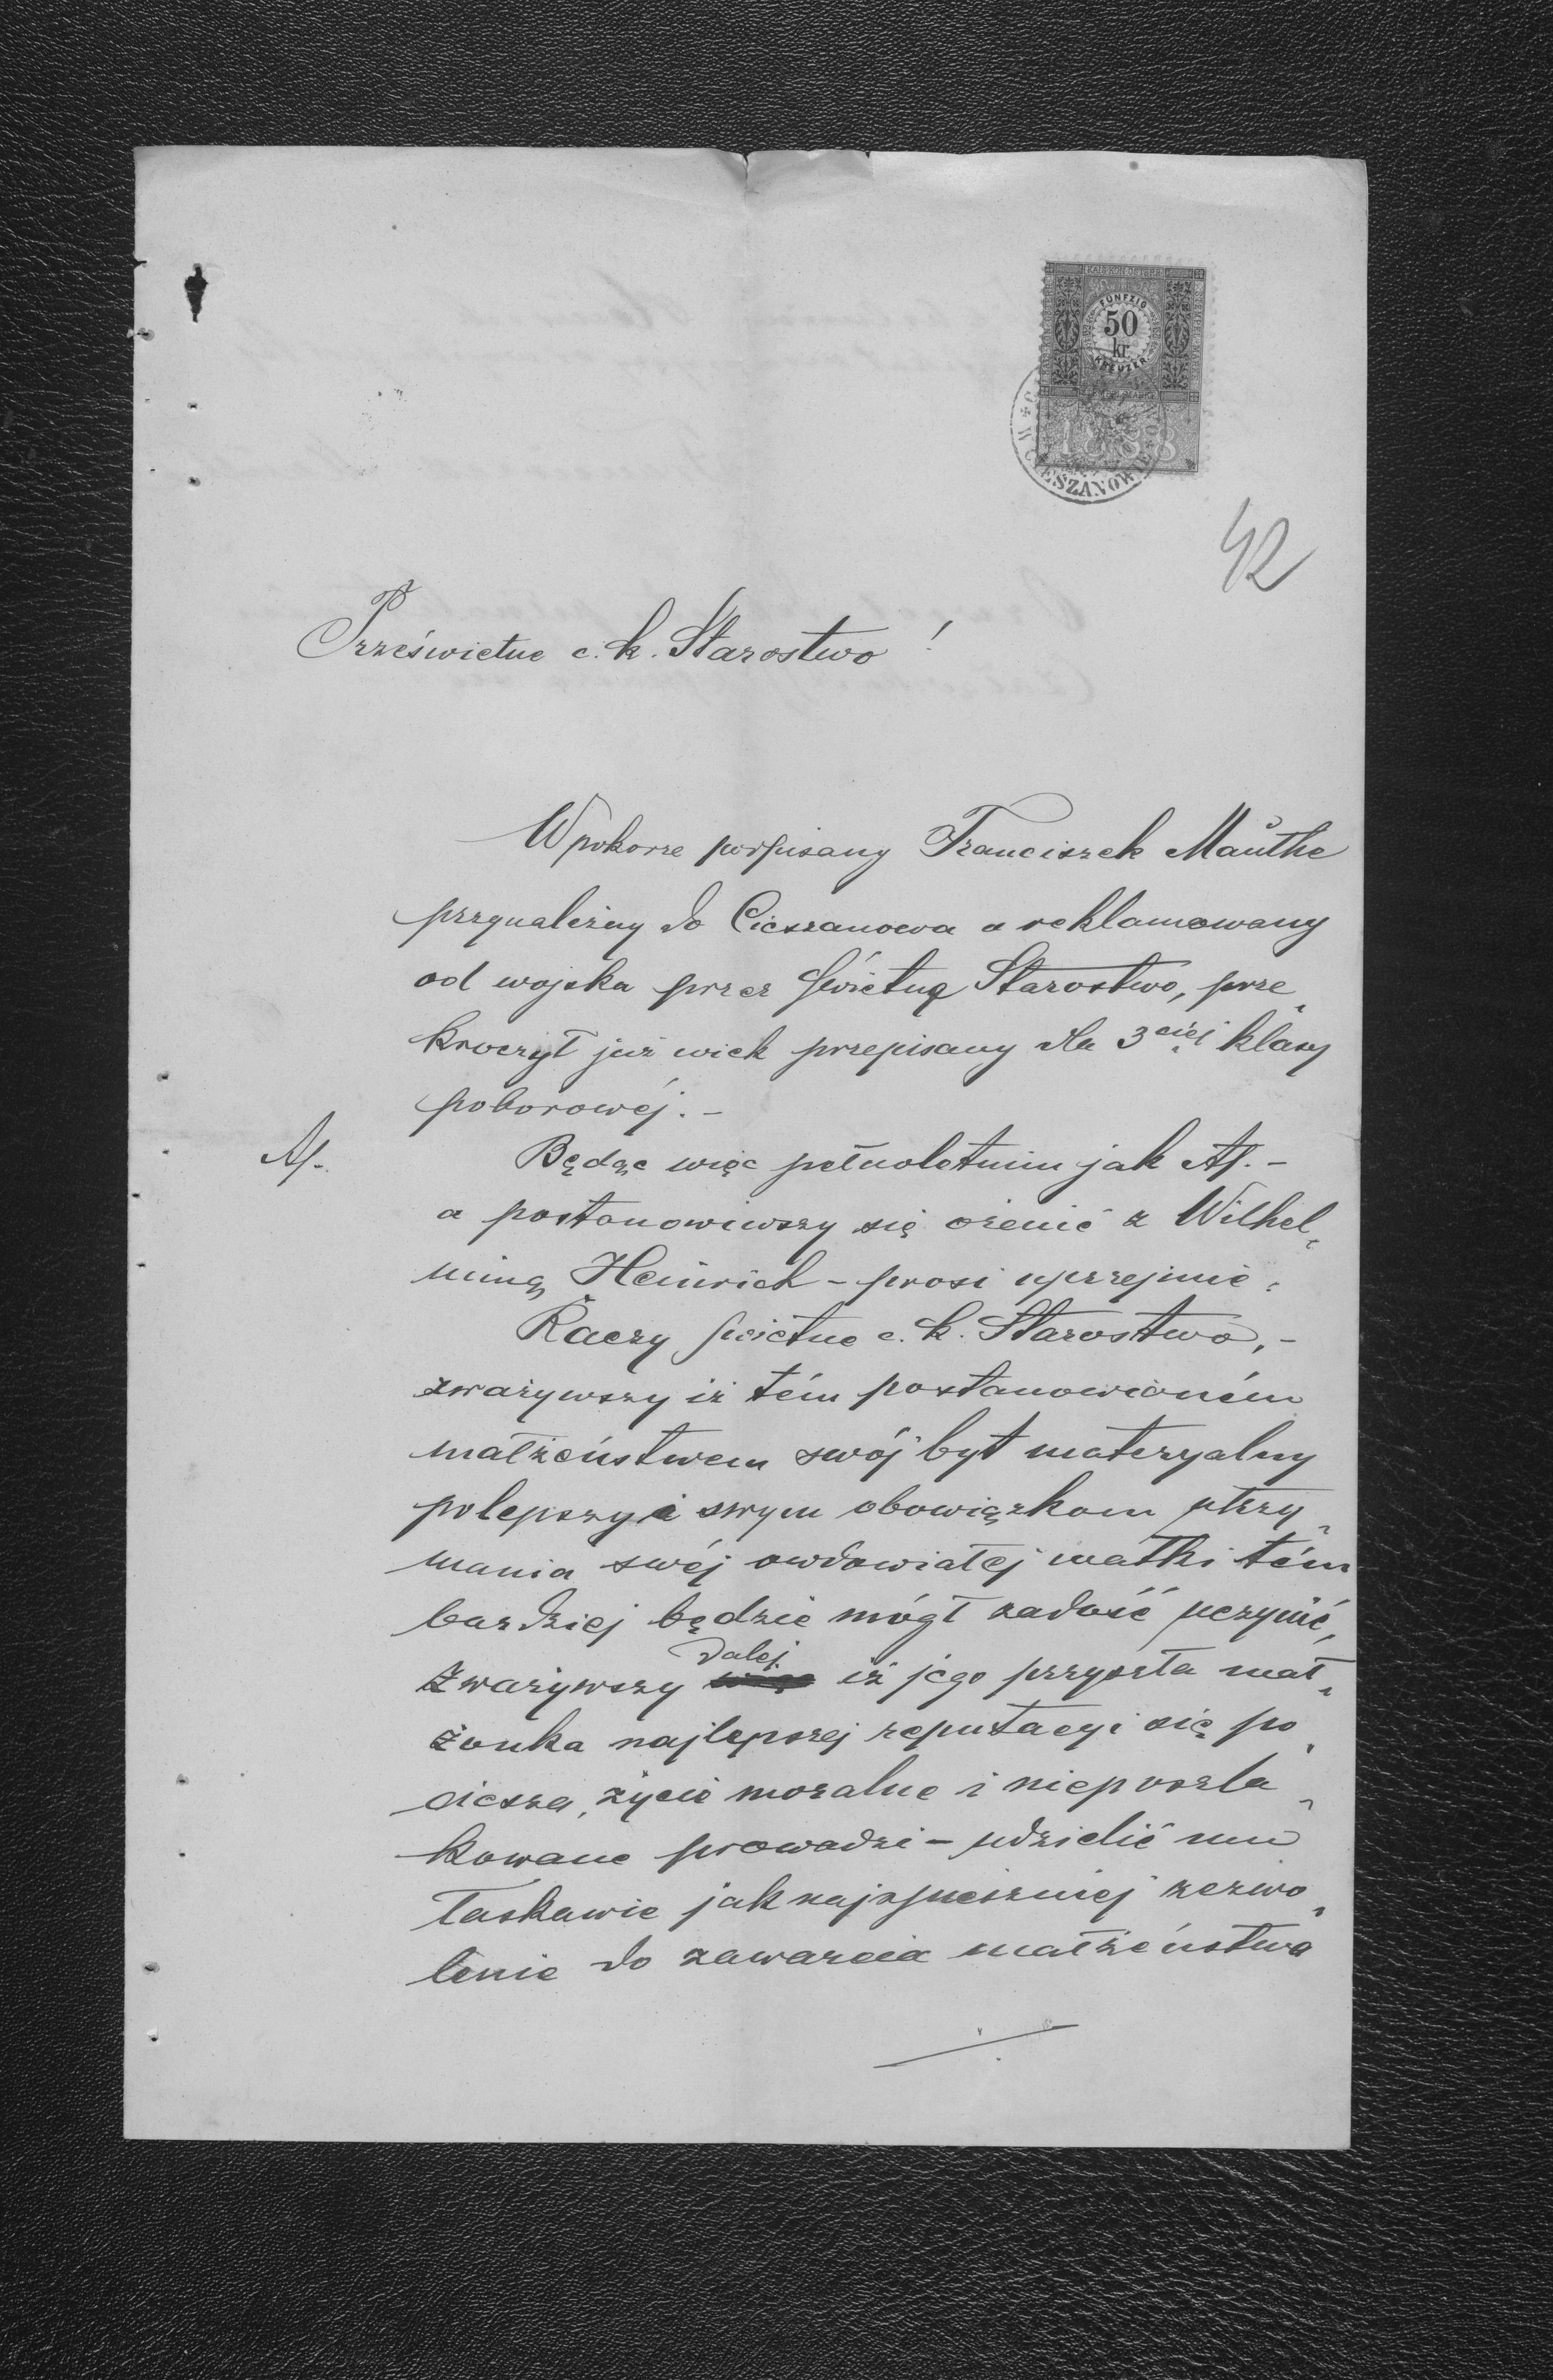 KAIS. KÖN. ÖSTERR.
FÜNFZIG
50
kr.
KREUZER
1888
W CIESZANOWIE
42
Prześwietne c. k. Starostwo!
W pokorze podpisany Franciszek Mauthe
przynależny do Cieszanowa a reklamowany
od wojska przez świetną Starostwo, prze„
kroczył już wiek przepisany dla 3ciej klasy
poborowéj. –
A/.
Będąc więc pełnoletnim jak A/. –
a postanowiwszy się ożenić z Wilhel„
miną Heinrich – prosi uprzejmie:
Raczy świetne c. k. Starostwo, –
zważywszy iż tém postanowioném
małżeństwem swój byt materyalny
polepszy i swym obowiązkom utrzy„
mania swéj owdowiałej matki tém
bardziej będzie mógł zadość uczynić,
zważywszy dalej iż jego przyszła mał„
żonka najlepszej reputacyi się po„
ciesza, życie moralne i nieposzla„
kowane prowadzi – udzielić mu
łaskawie jak najspieszniej zezwo„
lenie do zawarcia małżeństwa